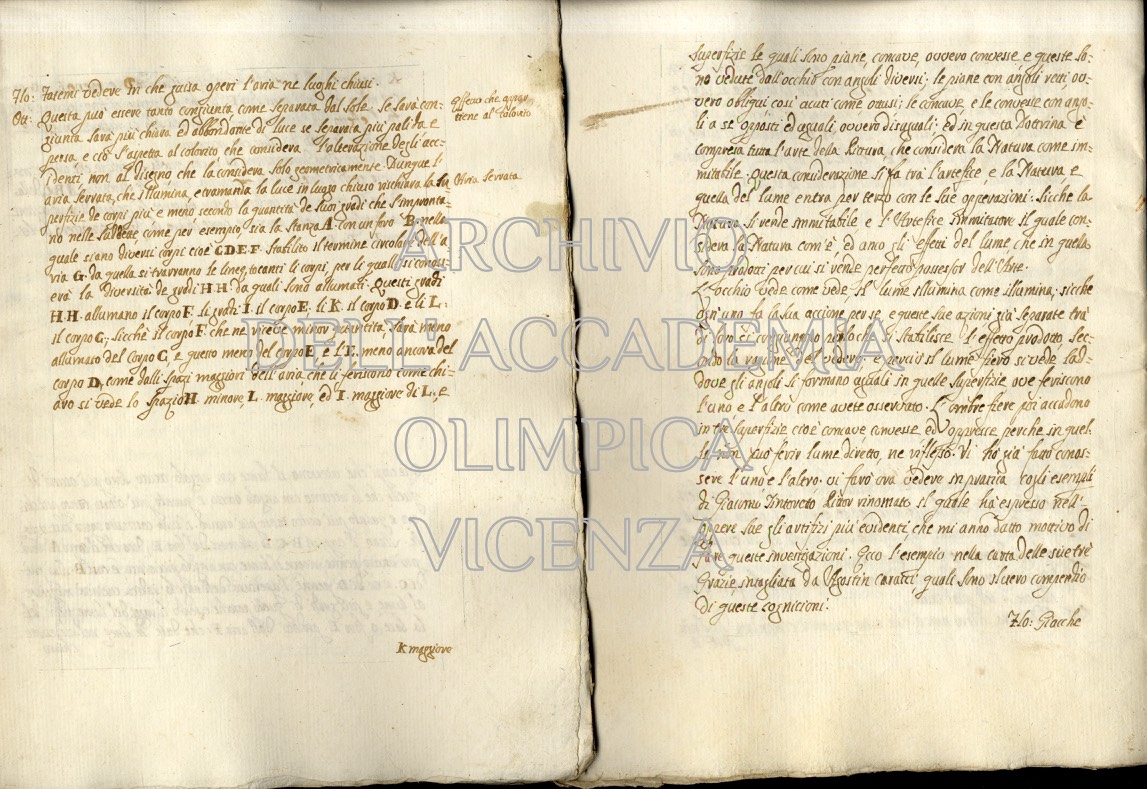 Flo: Fatemi vedeve in che guisa operi l'aria ne luoghi chiusi.
Ott: Questa può essere tanto congiunta come separata dal Sole. Se sarà con=
giunta sarà più chiara ed abbondante di luce se separata più palida e
persa, e ciò s'aspetta al colorito che considera l'alterazione degli acc=
identi non al disegno che la considera solo geometricamente. Dunque l'
aria serrata, che illumina, e tramanda la luce in luogo chiuso rischiara la su
perfizie de corpi più e meno secondo la quantità de suoi gradi che s'impronta=
no nelle sudette, come per esempio sia la stanza A con un foro B. nella
quale siano diversi corpi cioè C D E F. stabilito il termine circolare dell'a=
ria G. da quella si trarranno le linee tocanti li corpi, per li quali si conos=
erà la diversità de gradi H. H. da quali sono allumati. Questi gradi
H. H. allumano il corpo F. li gradi I. il corpo E. li K. il corpo D. e li L.
il corpo C; sicchè il corpo F che ne riceve minor quantità, sarà meno
allumato del corpo C, e questo meno del corpo E, e l'E. meno ancora del
corpo D, come dalli spazi maggiori dell'aria che li feriscono come chi=
aro si vede lo spazio H. minore, L. maggiore, ed I. maggiore di L, e
Effetto che appar=
tiene al Colorito
Aria Serrata
K maggiore
superfizie le quali sono piane, concave, ovvero convesse, e queste so=
no vedute dall'occhio con angoli diversi; le piane con angoli retti, ov=
vero obliqui così acuti come ottusi; le concave, e le convesse con ango=
li a se opposti ed aguali, ovvero disaguali; ed in questa Dottrina è
compresa tutta l'arte della Pittura, che considera la Natura come im=
mutabile. Questa considerazione si fà trà l'artefice, e la Natura e
quella del lume entra per terzo con le sue operazioni. Sicchè la
Natura si rende immutabile e l'Artefice immitatore il quale con=
sidera la Natura com'è, ed amo gli effetti del lume che in quella
sono prodotti per cui si rende perfetto possessor dell'Arte.
L'occhio vede come vede, il lume illumina come illumina; sicche
ogn'uno fa la sua accione per se, e queste sue azioni già separate trà
di loro si congiungno perlochè si stabilisce l'effetto prodotto, sec=
ondo la ragione del vedere e perciò il lume fiero si vede lad=
dove gli angoli si formano aguali in quelle superfizie ove feriscono
l'uno, e l'altro come avete osservato. L'ombre fiere poi accadono
in tré superfizie cioè concave convesse, ed oppresse perche in quel=
le non può ferir lume diretto, ne riflesso. Vi hò già fatto conos=
sere l'uno e l'altro. vi farò ora vedere in pratica cogli esempli
di Giacomo Tintoreto Pittor rinomato il quale ha espresso nell'
oppere sue gli artifizi più evidenti che mi anno datto motivo di
fare queste investigazioni. Ecco l'esempio nella carta delle sue tré
Grazie, intagliata da Agostin Caratci quali sono il vero compendio
di queste cognicioni.
Flo: Giacche
ARCHIVIO
DELL'ACCADEMIA
OLIMPICA
VICENZA